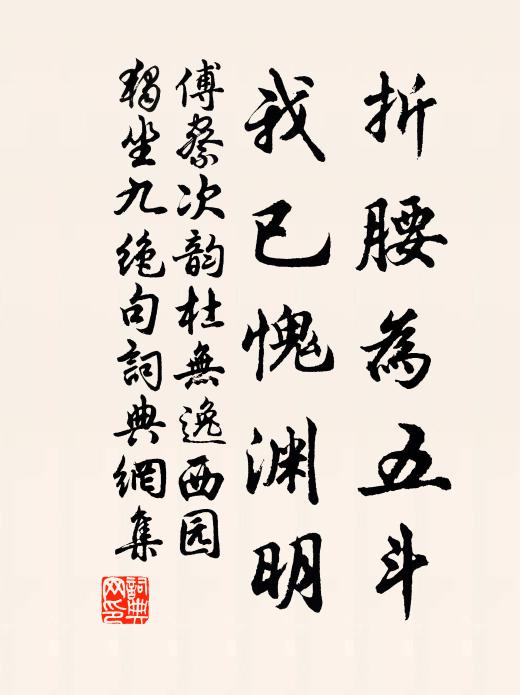 折腰為五斗
我已愧渊明
傅察次韵杜無逸西园
獨坐九绝句詞典網集
詞典
网印